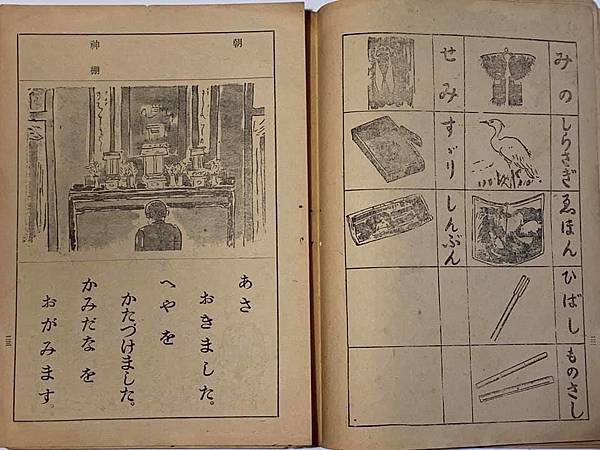 みの
しらさぎ
ゑほん
ひばし
ものさし
せみ
すゞり
しんぶん
朝
神棚
あさ
おきました。
へやを
かたづけました。
かみだなを
おがみます。